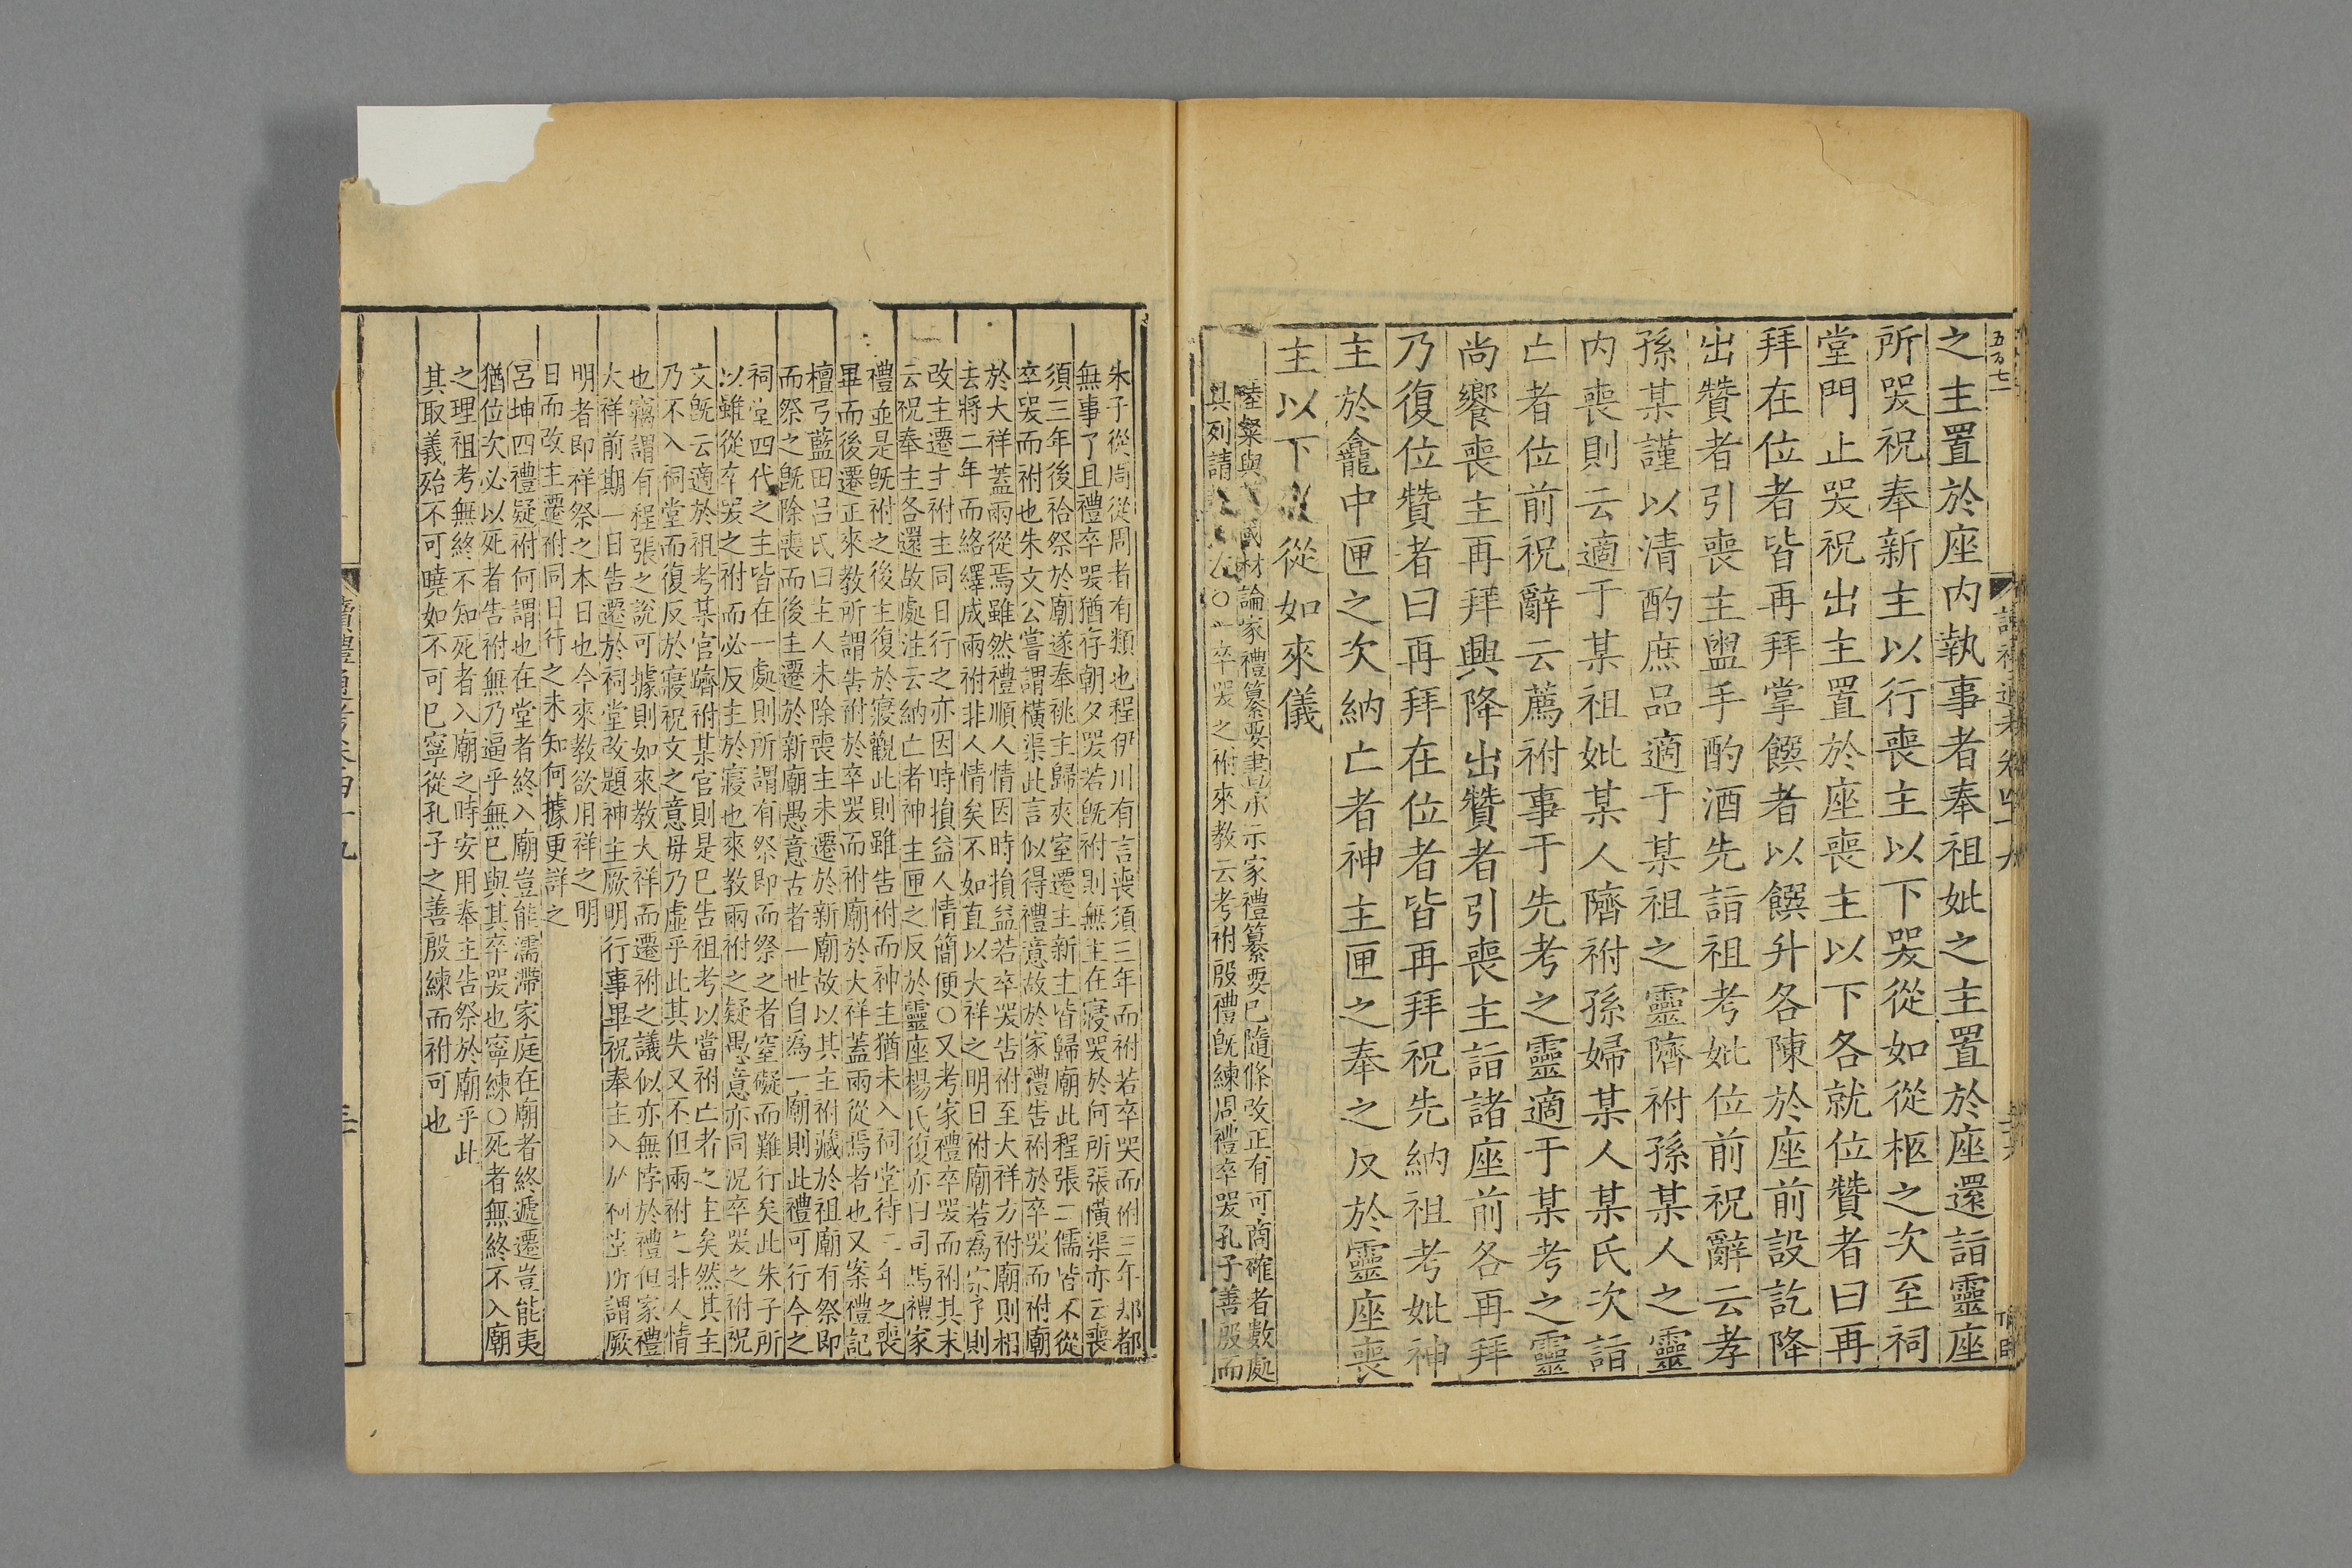 五百七
讀禮通考卷四十九
之主置於座内執事者奉祖妣之主置於座還詣靈座
所哭祝奉新主以行喪主以下哭從如從柩之次至祠
堂門止哭祝出主置於座喪主以下各就位贊者曰再
拜在位者皆再拜掌饌者以饌升各陳於座前設訖降
出贊者引喪主盥手酌酒先詣祖考妣位前祝辭云孝
孫某謹以清酌庶品適于某祖之靈隮祔孫某人之靈
内喪則云適于某祖妣某人隮祔孫婦某人某氏次詣
亡者位前祝辭云薦祔事于先考之靈適于某考之靈
尚饗喪主再拜興降出贊者引喪主詣諸座前各再拜
乃復位贊者曰再拜在位者皆再拜祝先納祖考妣神
主於龕中匣之次納亡者神主匣之奉之反於靈座喪
主以下從如來儀
陸粲與 國材論家禮纂要書示家禮纂要已隨條改正有可商確者數處
具列請 〇一卒哭之祔來教云考祔殷禮旣練周禮卒哭孔子善殷而
朱子從周從周者有類也程伊川有言喪須三年而祔若卒哭而祔三年却都
無事了且禮卒哭猶存朝夕哭若旣祔則無主在寢哭於何所張橫渠亦云喪
須三年後祫祭於廟遂奉祧主歸夾室遷主新主皆歸廟此程張二儒皆不從
卒哭而祔也朱文公嘗謂橫渠此言似得禮意故於家禮告祔於卒哭而祔廟
於大祥蓋兩從焉雖然禮順人情因時損益若卒哭告祔至大祥方祔廟則相
去將二年而絡繹成兩祔非人情矣不如直以大祥之明日祔廟若爲宗子則
改主遷主祔主同日行之亦因時損益人情簡便〇又考家禮卒哭而祔其末
云祝奉主各還故處注云納亡者神主匣之反於靈座楊氏復亦曰司馬禮家
禮並是旣祔之後主復於寢觀此則雖告祔而神主猶未入祠堂待三年之喪
畢而後遷正來教所謂告祔於卒哭而祔廟於大祥蓋兩從焉者也又案禮記
檀弓藍田呂氏曰主人未除喪主未遷於新廟故以其主祔藏於祖廟有祭即
而祭之旣除喪而後主遷於新廟愚意古者一世自爲一廟則此禮可行今之
祠堂四代之主皆在一處則所謂有祭即而祭之者窒礙而難行矣此朱子所
以雖從卒哭之祔而必反主於寢也來教兩祔之疑愚意亦同況卒哭之祔祝
文旣云適於祖考某官隮祔某官則是巳告祖考以當祔亡者之主矣然其主
乃不入祠堂而復反於寢祝文之意毋乃虛乎此其失又不但兩祔之非人情
也竊謂有程張之說可據則如來教大祥而遷祔之議似亦無悖於禮但家禮
大祥前期一日告遷於祠堂改題神主厥明行事畢祝奉主入於祠堂所謂厥
明者即祥祭之本日也今來教欲用祥之明
日而改主遷祔同日行之未知何據更詳之
呂坤四禮疑祔何謂也在堂者終入廟豈能濡滯家庭在廟者終遞遷豈能夷
猶位次必以死者告祔無乃逼乎無巳與其卒哭也寧練〇死者無終不入廟
之理祖考無終不知死者入廟之時安用奉主告祭於廟乎此
其取義殆不可曉如不可巳寧從孔子之善殷練而祔可也
讀禮通考卷四十九